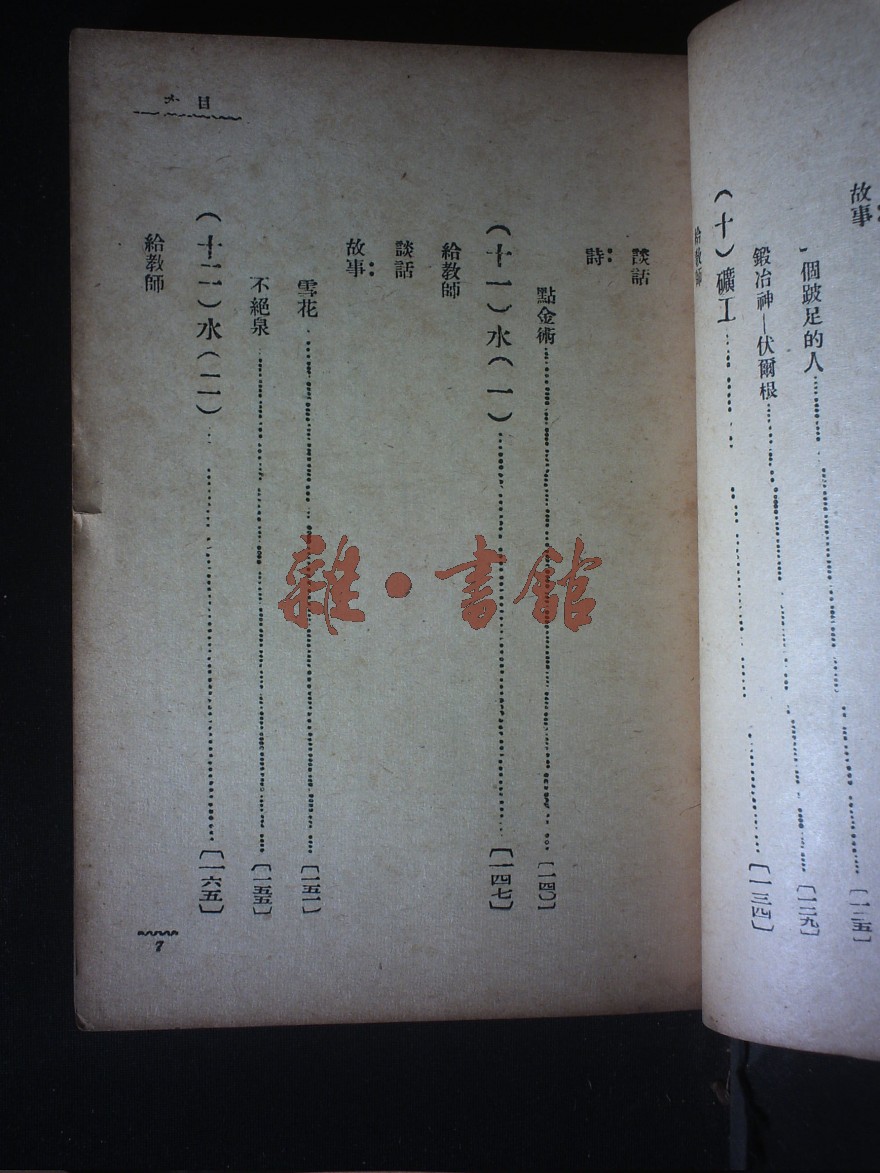 故事：
一個跛足的人……〔一二五〕
鍛冶神—伏爾根……〔一二九〕
（十）礦工……〔一三四〕
給教師
談話
詩：
點金術……〔一四〇〕
（十一）水（一）……〔一四七〕
給教師
談話
故事：
雪花……〔一五一〕
不絕泉……〔一五五〕
（十二）水（二）……〔一六五〕
給教師
目次
7
雜·書館